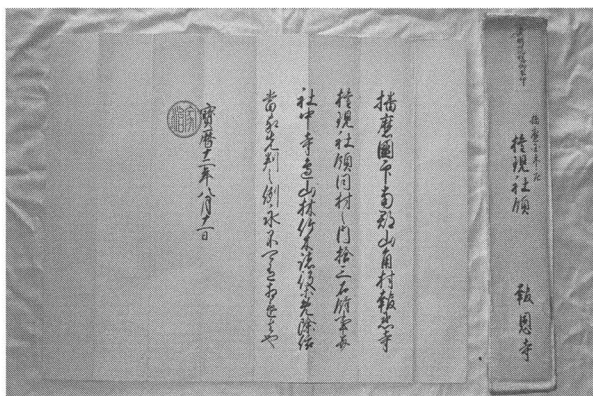 權現社領
報恩寺
播磨國印南郡山角村報恩寺
權現社領同村之内拾三石餘事并
社中寺邊山林竹木諸役等免除依
當家先判之例永不可有相違者也
寶暦十二年八月十一日